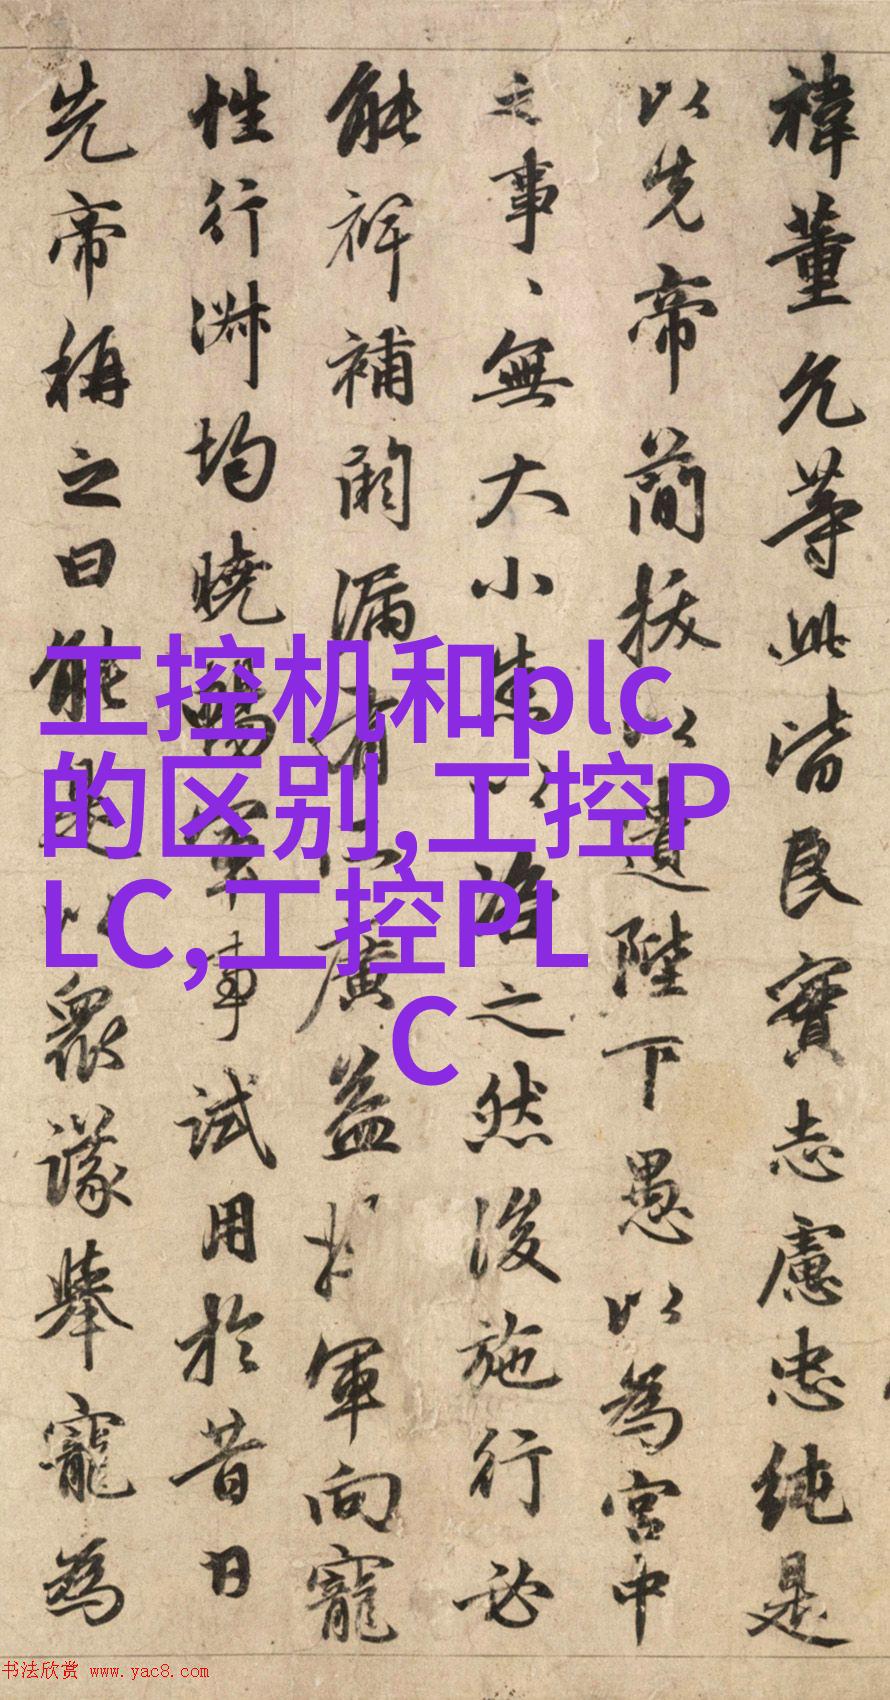 禕董允等此皆良實志慮忠純是
以先帝簡拔以遺陛下愚以為宮中
之事、無大小悉以咨之然後施行必
能裨補闕漏有所廣益將軍向寵
性行淑均曉暢軍事試用於昔日
先帝稱之曰能是以眾議舉寵為
工控机和plc
的区别,工控P
LC,工控PL
C
书法欣赏 www.yac8.com